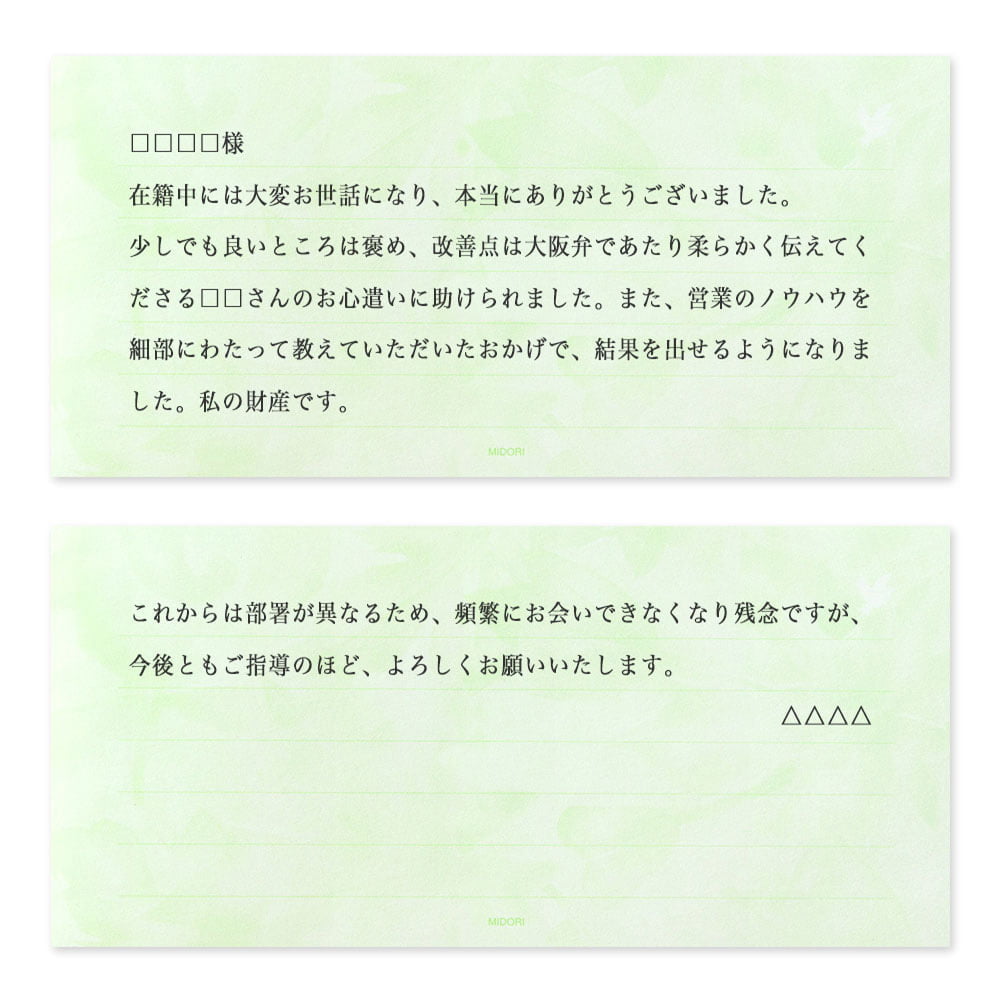 □□□□様
在籍中には大変お世話になり、本当にありがとうございました。
少しでも良いところは褒め、改善点は大阪弁であたり柔らかく伝えてく
ださる□□さんのお心遣いに助けられました。また、営業のノウハウを
細部にわたって教えていただいたおかげで、結果を出せるようになりま
した。私の財産です。
MIDORI
これからは部署が異なるため、頻繁にお会いできなくなり残念ですが、
今後ともご指導のほど、よろしくお願いいたします。
△△△△
MIDORI